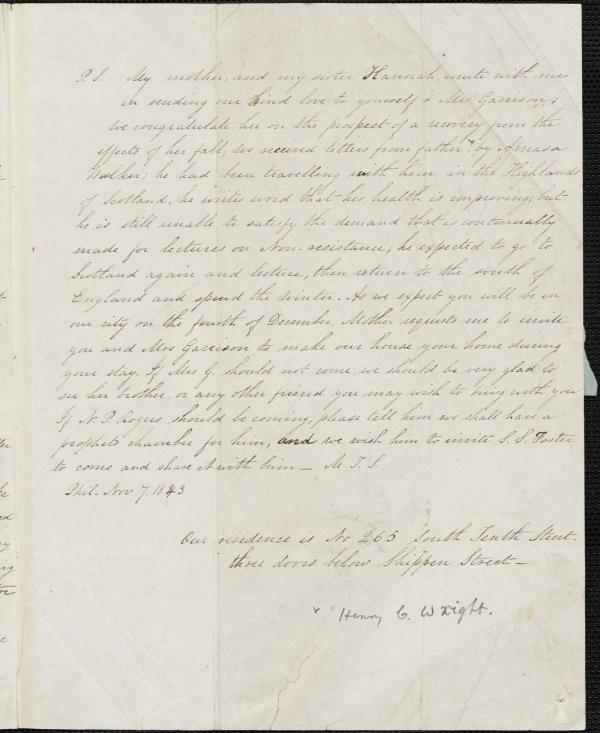 P.S. My mother, and my sister Hannah, unite with me
in sending our kind love to yourself & Mrs Garrison;
we congratulate her on the prospect of a recovery from the
effects of her fall, we received letters from father x by Amasa
Walker; he had been travelling with him in the Highlands
of Scotland, he writes word that his health is improving, but
he is still unable to satisfy the demand that is continually
made for lectures on Non-resistance; he expected to go to
Scotland again and lecture, then return to the south of
England and spend the winter. As we expect you will be in
our city on the fourth of December, Mother requests me to invite
you and Mrs Garrison to make our house your home during
your stay. If Mrs G. should not come, we should be very glad to
see her brother, or any other friend you may wish to bring with you
If N. P. Rogers should be coming, please tell him we shall have a
prophets chamber for him, and we wish him to invite S. S. Foster
to come and share it with him — M. T. S.
Phil. Nov 7. 1843
Our residence is No 265 South Tenth Street.
three doors below Shippen Street —
x Henry C. Wright.